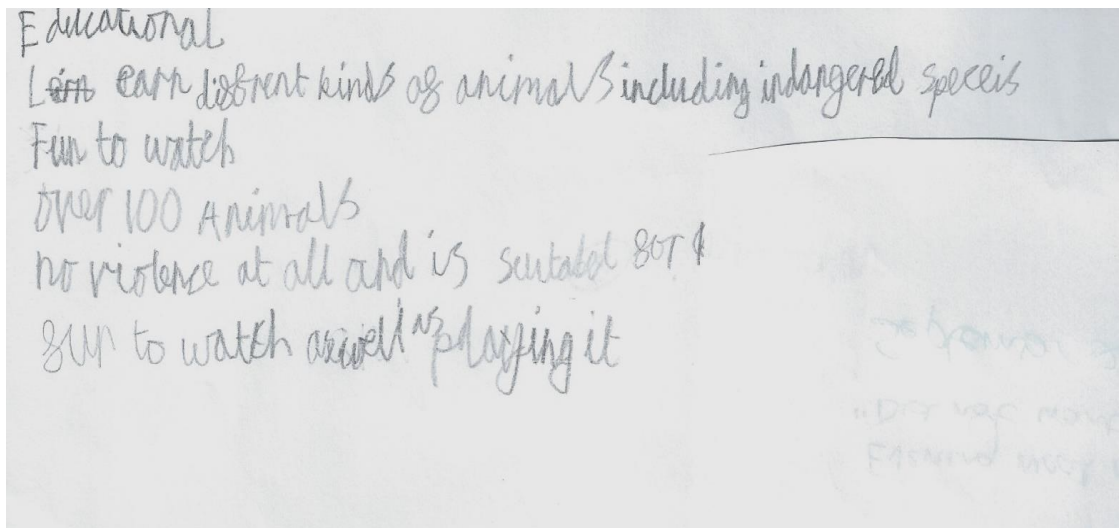 Educational
Learn diffrent kinds of animals including indangered speceis
Fun to watch
Over 100 Animals
no violence at all and is sutabel for
fun to watch aswell as playing it